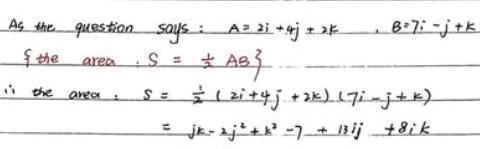 As the question says : A = 2i + 4j + 2k . B = 7i - j + k
{ the area . S = ½ AB }
∴ the area : S = ½ ( 2i + 4j + 2k ) ( 7i - j + k )
= jk - 2j² + k² - 7 + 13ij + 8ik